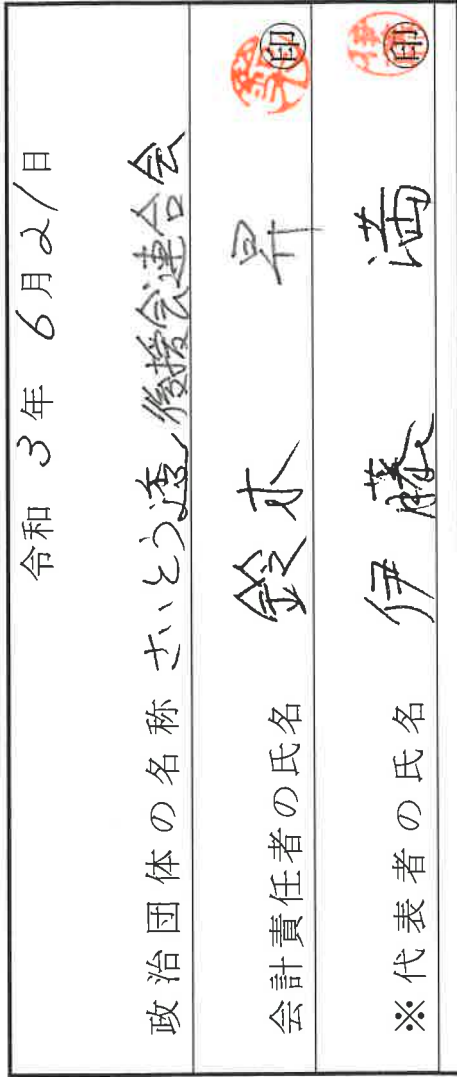 令和 3年 6月21日
政治団体の名称 さいとう透後援会連合会
会計責任者の氏名 鈴木 昇 印
※代表者の氏名 伊藤 満 印